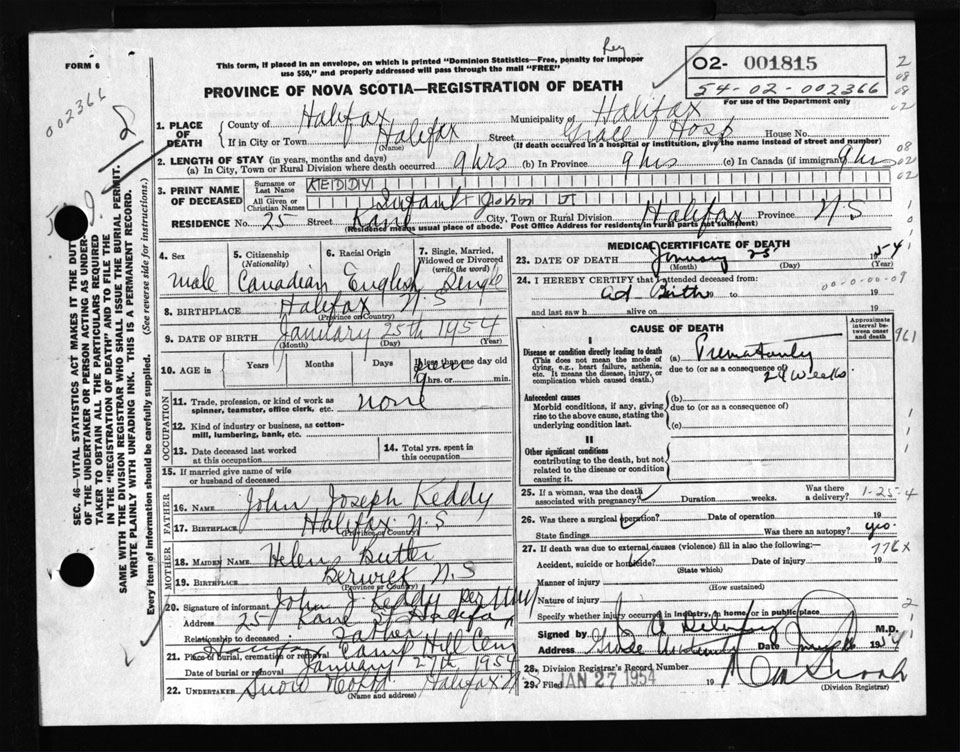 FORM 6
This form, if placed in an envelope, on which is printed "Dominion Statistics—Free, penalty for improper
use $50," and properly addressed will pass through the mail "FREE"
Reg
02- 001815
54-02-002366
For use of the Department only
002366
PROVINCE OF NOVA SCOTIA—REGISTRATION OF DEATH
1. PLACE OF DEATH
County of Halifax Municipality of Halifax
If in City or Town Halifax Street Grace Hosp House No.
(Name) (If death occurred in a hospital or institution, give the name instead of street and number)
2. LENGTH OF STAY (in years, months and days)
(a) In City, Town or Rural Division where death occurred 9 hrs (b) In Province 9 hrs (c) In Canada (if immigrant) 9 hrs
3. PRINT NAME OF DECEASED
Surname or Last Name KEDDY
All Given or Christian Names Infant John J
RESIDENCE No. 25 Street Kane City, Town or Rural Division Halifax Province N.S
(Residence means usual place of abode. Post Office Address for residents in rural parts not sufficient)
4. Sex
male
5. Citizenship (Nationality)
Canadian
6. Racial Origin
English
7. Single, Married, Widowed or Divorced (write the word)
Single
8. BIRTHPLACE Halifax N.S
(Province or Country)
9. DATE OF BIRTH January 25th 1954
(Month) (Day) (Year)
10. AGE in Years Months Days If less than one day old
9 hrs. or min.
OCCUPATION
11. Trade, profession, or kind of work as spinner, teamster, office clerk, etc. none
12. Kind of industry or business, as cotton-mill, lumbering, bank, etc.
13. Date deceased last worked at this occupation
14. Total yrs. spent in this occupation
15. If married give name of wife or husband of deceased
FATHER
16. NAME John Joseph Keddy
17. BIRTHPLACE Halifax N.S
(Province or Country)
MOTHER
18. MAIDEN NAME Helen
19. BIRTHPLACE Berwick N.S
(Province or Country)
20. Signature of informant John J Keddy per
Address 25 Kane St Halifax
Relationship to deceased Father
21. Place of burial, cremation or removal Camp Hill Cem
Date of burial or removal January 27th 1954
22. UNDERTAKER Snow Halifax
(Name and address)
MEDICAL CERTIFICATE OF DEATH
23. DATE OF DEATH January 25 1954
(Month) (Day) (Year)
24. I HEREBY CERTIFY that I attended deceased from:
at Birth 19 to 19
00-0-00-09
and last saw h alive on 19
CAUSE OF DEATH
Approximate interval between onset and death
961
I
Disease or condition directly leading to death
(This does not mean the mode of dying, e.g., heart failure, asthenia, etc. It means the disease, injury, or complication which caused death.)
(a) Prematurity
due to (or as a consequence of)
28 weeks.
Antecedent causes
Morbid conditions, if any, giving rise to the above cause, stating the underlying condition last.
(b)
due to (or as a consequence of)
(c)
II
Other significant conditions
contributing to the death, but not related to the disease or condition causing it.
25. If a woman, was the death associated with pregnancy? Duration weeks. Was there a delivery? 1-25-4
26. Was there a surgical operation? Date of operation 19
State findings Was there an autopsy? yes.
27. If death was due to external causes (violence) fill in also the following:—
776x
Accident, suicide or homicide?
(State which)
Manner of injury
(How sustained)
Nature of injury
Specify whether injury occurred in industry, in home, or in public place
Signed by M.D.
Address Date 19
28. Division Registrar's Record Number
29. Filed JAN 27 1954 19
(Division Registrar)
SEC. 46—VITAL STATISTICS ACT MAKES IT THE DUTY
OF THE UNDERTAKER OR PERSON ACTING AS UNDERTAKER
TO OBTAIN ALL THE PARTICULARS REQUIRED
IN THE "REGISTRATION OF DEATH" AND TO FILE THE
SAME WITH THE DIVISION REGISTRAR WHO SHALL ISSUE THE BURIAL PERMIT.
WRITE PLAINLY WITH UNFADING INK. THIS IS A PERMANENT RECORD.
Every item of information should be carefully supplied. (See reverse side for instructions.)